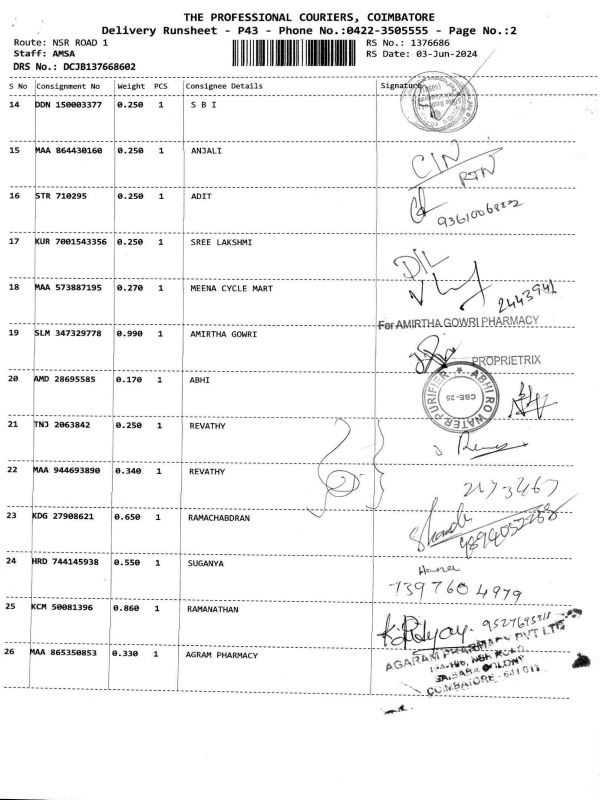 THE PROFESSIONAL COURIERS, COIMBATORE
Delivery Runsheet - P43 - Phone No.:0422-3505555 - Page No.:2
Route: NSR ROAD 1
RS No.: 1376686
Staff: AMSA
RS Date: 03-Jun-2024
DRS No.: DCJB137668602
S No Consignment No Weight PCS Consignee Details Signature
14 DDN 150003377 0.250 1 S B I
15 MAA 864430160 0.250 1 ANJALI
CIN
RTN
16 STR 710295 0.250 1 ADIT
17 KUR 7001543356 0.250 1 SREE LAKSHMI
D/L
18 MAA 573887195 0.270 1 MEENA CYCLE MART
2443941
For AMIRTHA GOWRI PHARMACY
19 SLM 347329778 0.990 1 AMIRTHA GOWRI
PROPRIETRIX
20 AMD 28695585 0.170 1 ABHI
ABHI RO WATER PURIFIER
CBE-25
21 TNJ 2063842 0.250 1 REVATHY
22 MAA 944693890 0.340 1 REVATHY
2173467
23 KDG 27908621 0.650 1 RAMACHABDRAN
24 HRD 744145938 0.550 1 SUGANYA
7397604979
25 KCM 50081396 0.860 1 RAMANATHAN
26 MAA 865350853 0.330 1 AGRAM PHARMACY
AGARAM PHARMACY PVT LTD
NSR ROAD,
SAIBABA COLONY
COIMBATORE - 641 011